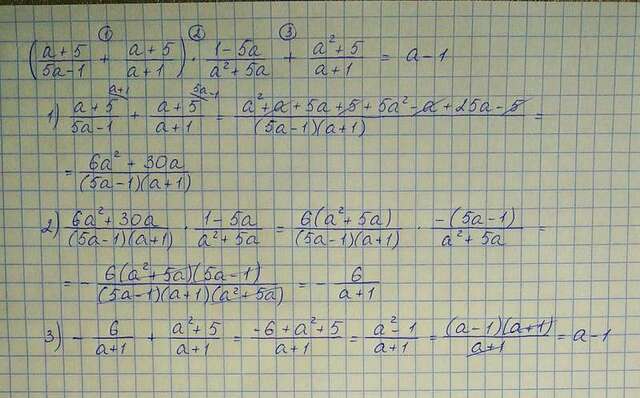 ① ② ③
((a+5)/(5a-1) + (a+5)/(a+1)) · (1-5a)/(a²+5a) + (a²+5)/(a+1) = a-1
1) (a+5)/(5a-1) ^(a+1) + (a+5)/(a+1) ^(5a-1) = (a²+a+5a+5+5a²-a+25a-5)/((5a-1)(a+1)) =
= (6a²+30a)/((5a-1)(a+1))
2) (6a²+30a)/((5a-1)(a+1)) · (1-5a)/(a²+5a) = 6(a²+5a)/((5a-1)(a+1)) · -(5a-1)/(a²+5a) =
= - 6(a²+5a)(5a-1)/((5a-1)(a+1)(a²+5a)) = - 6/(a+1)
3) - 6/(a+1) + (a²+5)/(a+1) = (-6+a²+5)/(a+1) = (a²-1)/(a+1) = (a-1)(a+1)/(a+1) = a-1